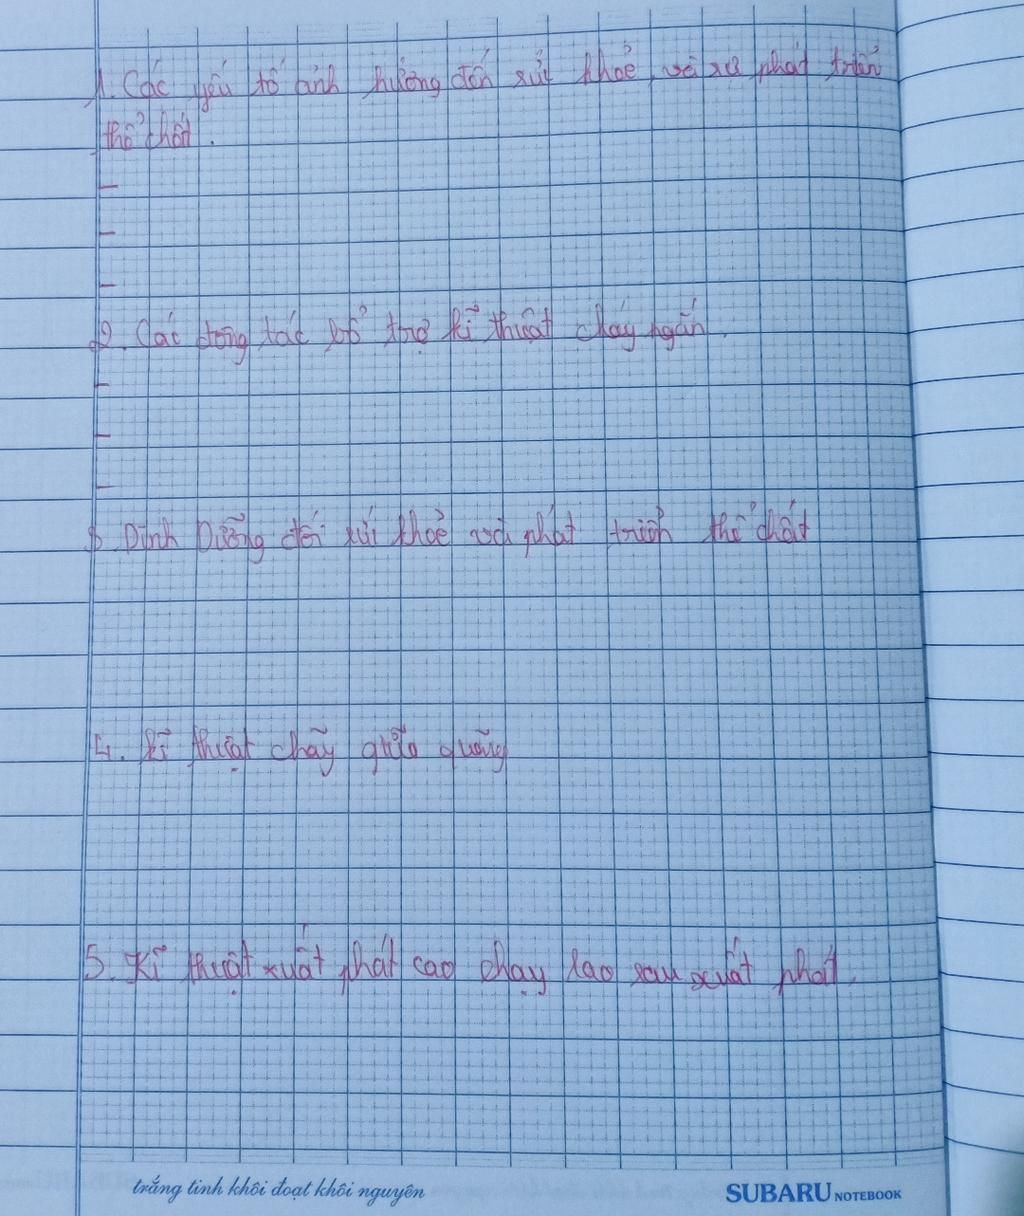 1. Các yếu tố ảnh hưởng đến sức khoẻ và sự phát triển
thể chất.
-
-
-
2. Các động tác bổ trợ kĩ thuật chạy ngắn.
-
-
-
3. Dinh Dưỡng đối sức khoẻ và phát triển thể chất
4. Kĩ thuật chãy giữa quãng
5. Kĩ thuật xuất phát cao chạy lao sau xuất phát.
trắng tinh khôi đoạt khôi nguyên
SUBARU NOTEBOOK